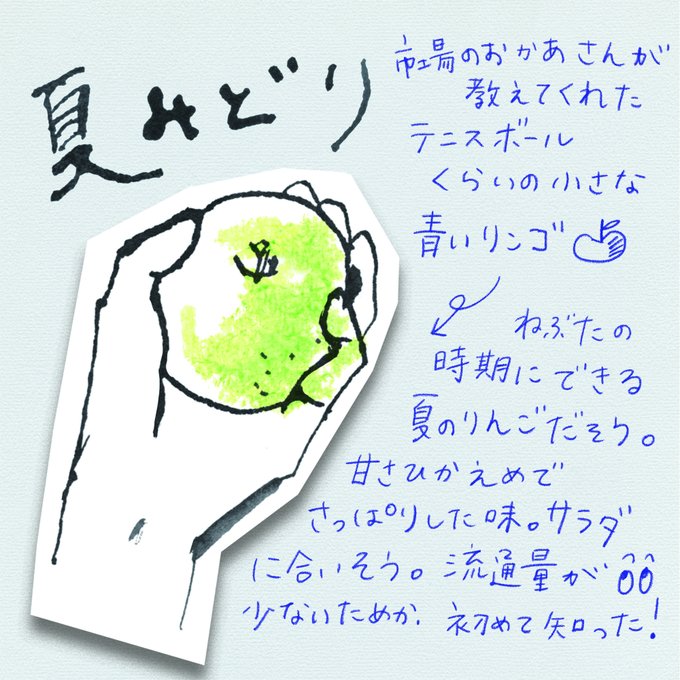 夏みどり
市場のおかあさんが
教えてくれた
テニスボール
くらいの小さな
青いリンゴ
ねぶたの
時期にできる
夏のりんごだそう。
甘さひかえめで
さっぱりした味。サラダ
に合いそう。流通量が
少ないためか、初めて知った!